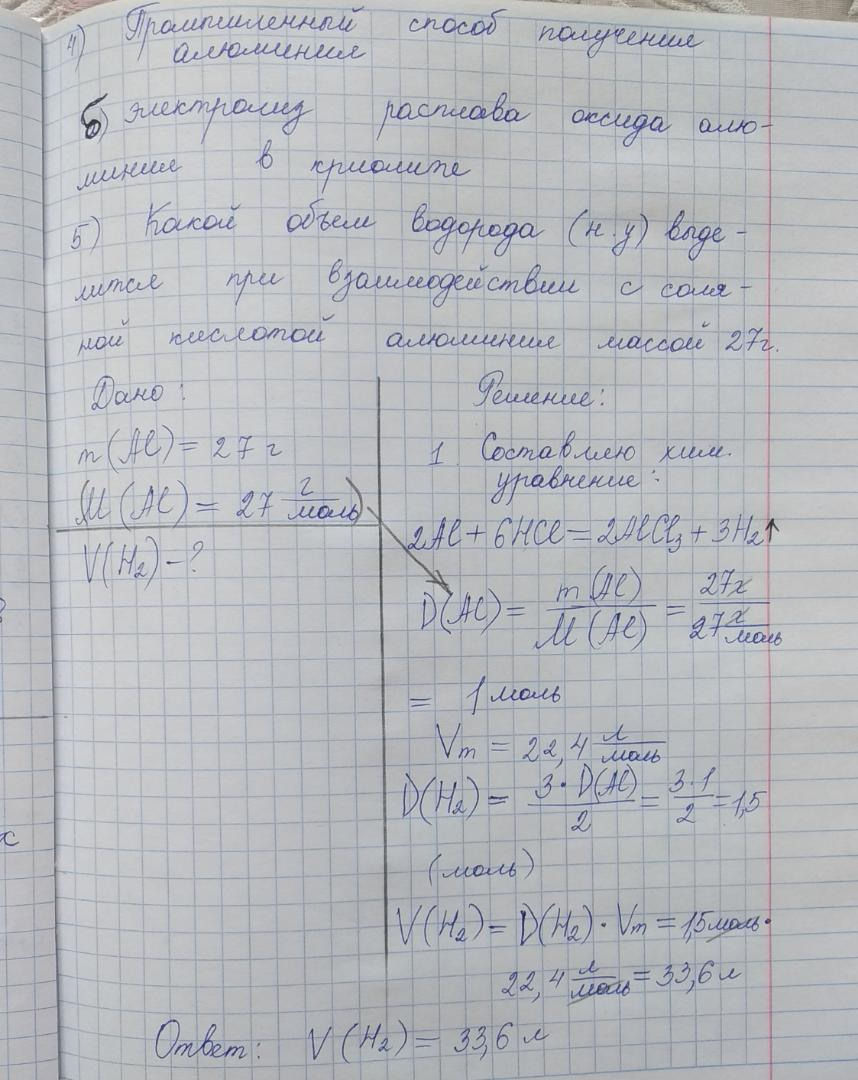 4) Промышленный способ получения
алюминия
б) электролиз расплава оксида алю-
миния в криолите
5) Какой объем водорода (н.у) выде-
лится при взаимодействии с соля-
ной кислотой алюминия массой 27г.
Дано:
m(Al) = 27 г
M(Al) = 27 г/моль
V(H₂) - ?
Решение:
1. Составлю хим.
уравнение:
2Al + 6HCl = 2AlCl₃ + 3H₂↑
D(Al) = m(Al)/M(Al) = 27г/27 г/моль
= 1 моль
Vm = 22,4 л/моль
D(H₂) = 3·D(Al)/2 = 3·1/2 = 1,5
(моль)
V(H₂) = D(H₂) · Vm = 1,5 моль ·
22,4 л/моль = 33,6 л
Ответ: V(H₂) = 33,6 л